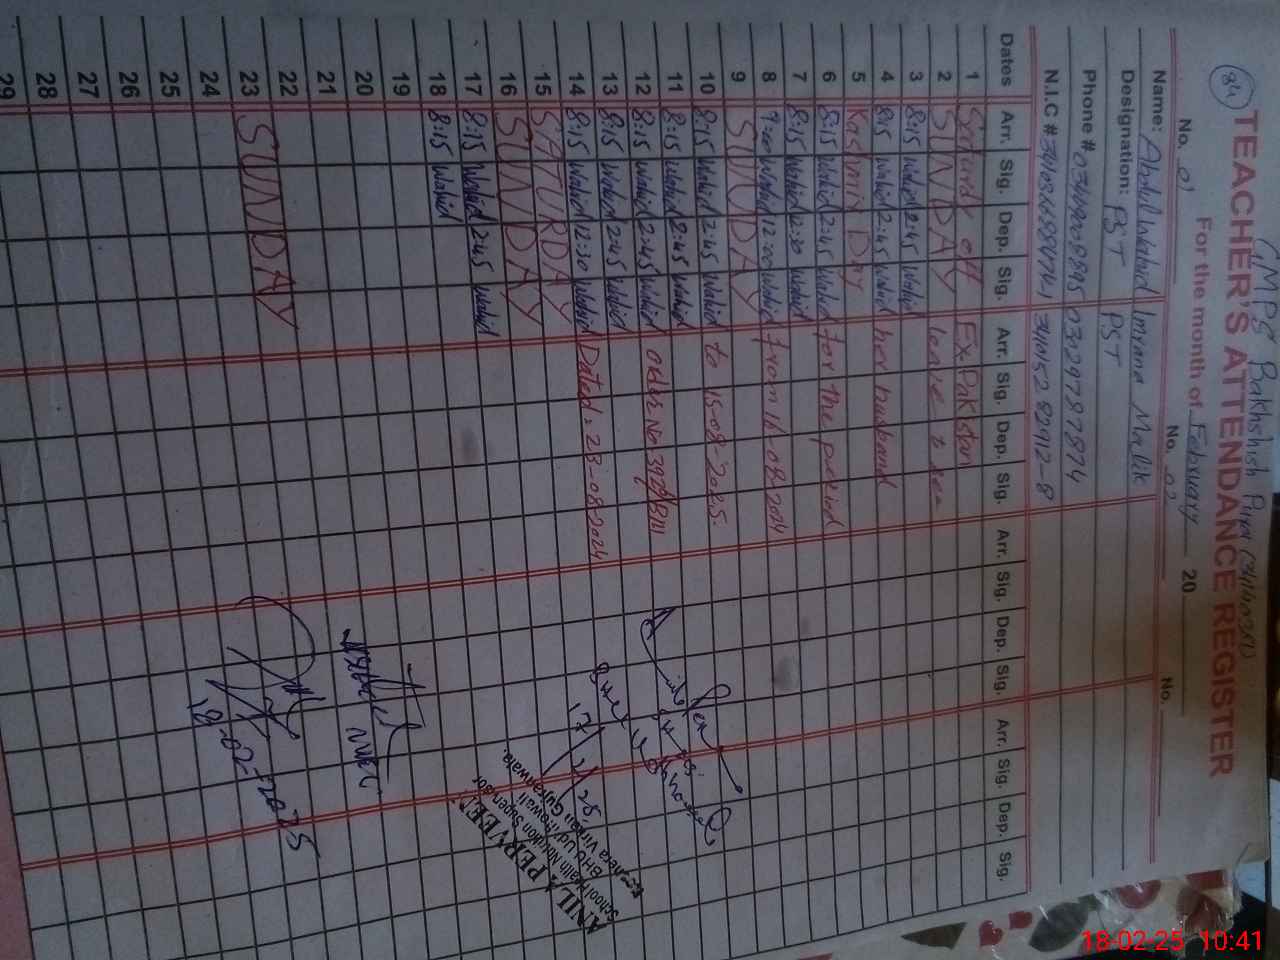 GMPS Bakhshish Pura (34140381)
84
TEACHER'S ATTENDANCE REGISTER
For the month of February 20
No. 01 No. 02 No.
Name: Abdul Wahid Imrana Malik
Designation: PST PST
Phone # 03297787874
N.I.C #
Dates Arr. Sig. Dep. Sig. Arr. Sig. Dep. Sig. Arr. Sig. Dep. Sig. Arr. Sig. Dep. Sig.
1 off Ex. Pakistan
2 SUNDAY leave to see
3 8:15 Wahid 2:45 Wahid
4 8:15 Wahid 2:45 Wahid her husband
5 Kashmir Day
6 8:15 Wahid 2:45 Wahid for the period
7 8:15 Wahid 12:30 Wahid
8 9:00 Wahid 12:00 Wahid from 16-08-2024
9 SUNDAY
10 8:15 Wahid 2:45 Wahid to 15-08-2025.
11 8:15 Wahid 2:45 Wahid
12 8:15 Wahid 2:45 Wahid order No
13 8:15 Wahid 2:45 Wahid
14 8:15 Wahid 12:30 Wahid Dated. 23-08-2024
15 SATURDAY
16 SUNDAY
17 8:15 Wahid 2:45 Wahid
18 8:15 Wahid
19
20
21
22
23 SUNDAY
24
25
26
27
28
29
ANILA PERVEEN
School Health Nutrition Supervisor
18-02-2025
18-02-25 10:41